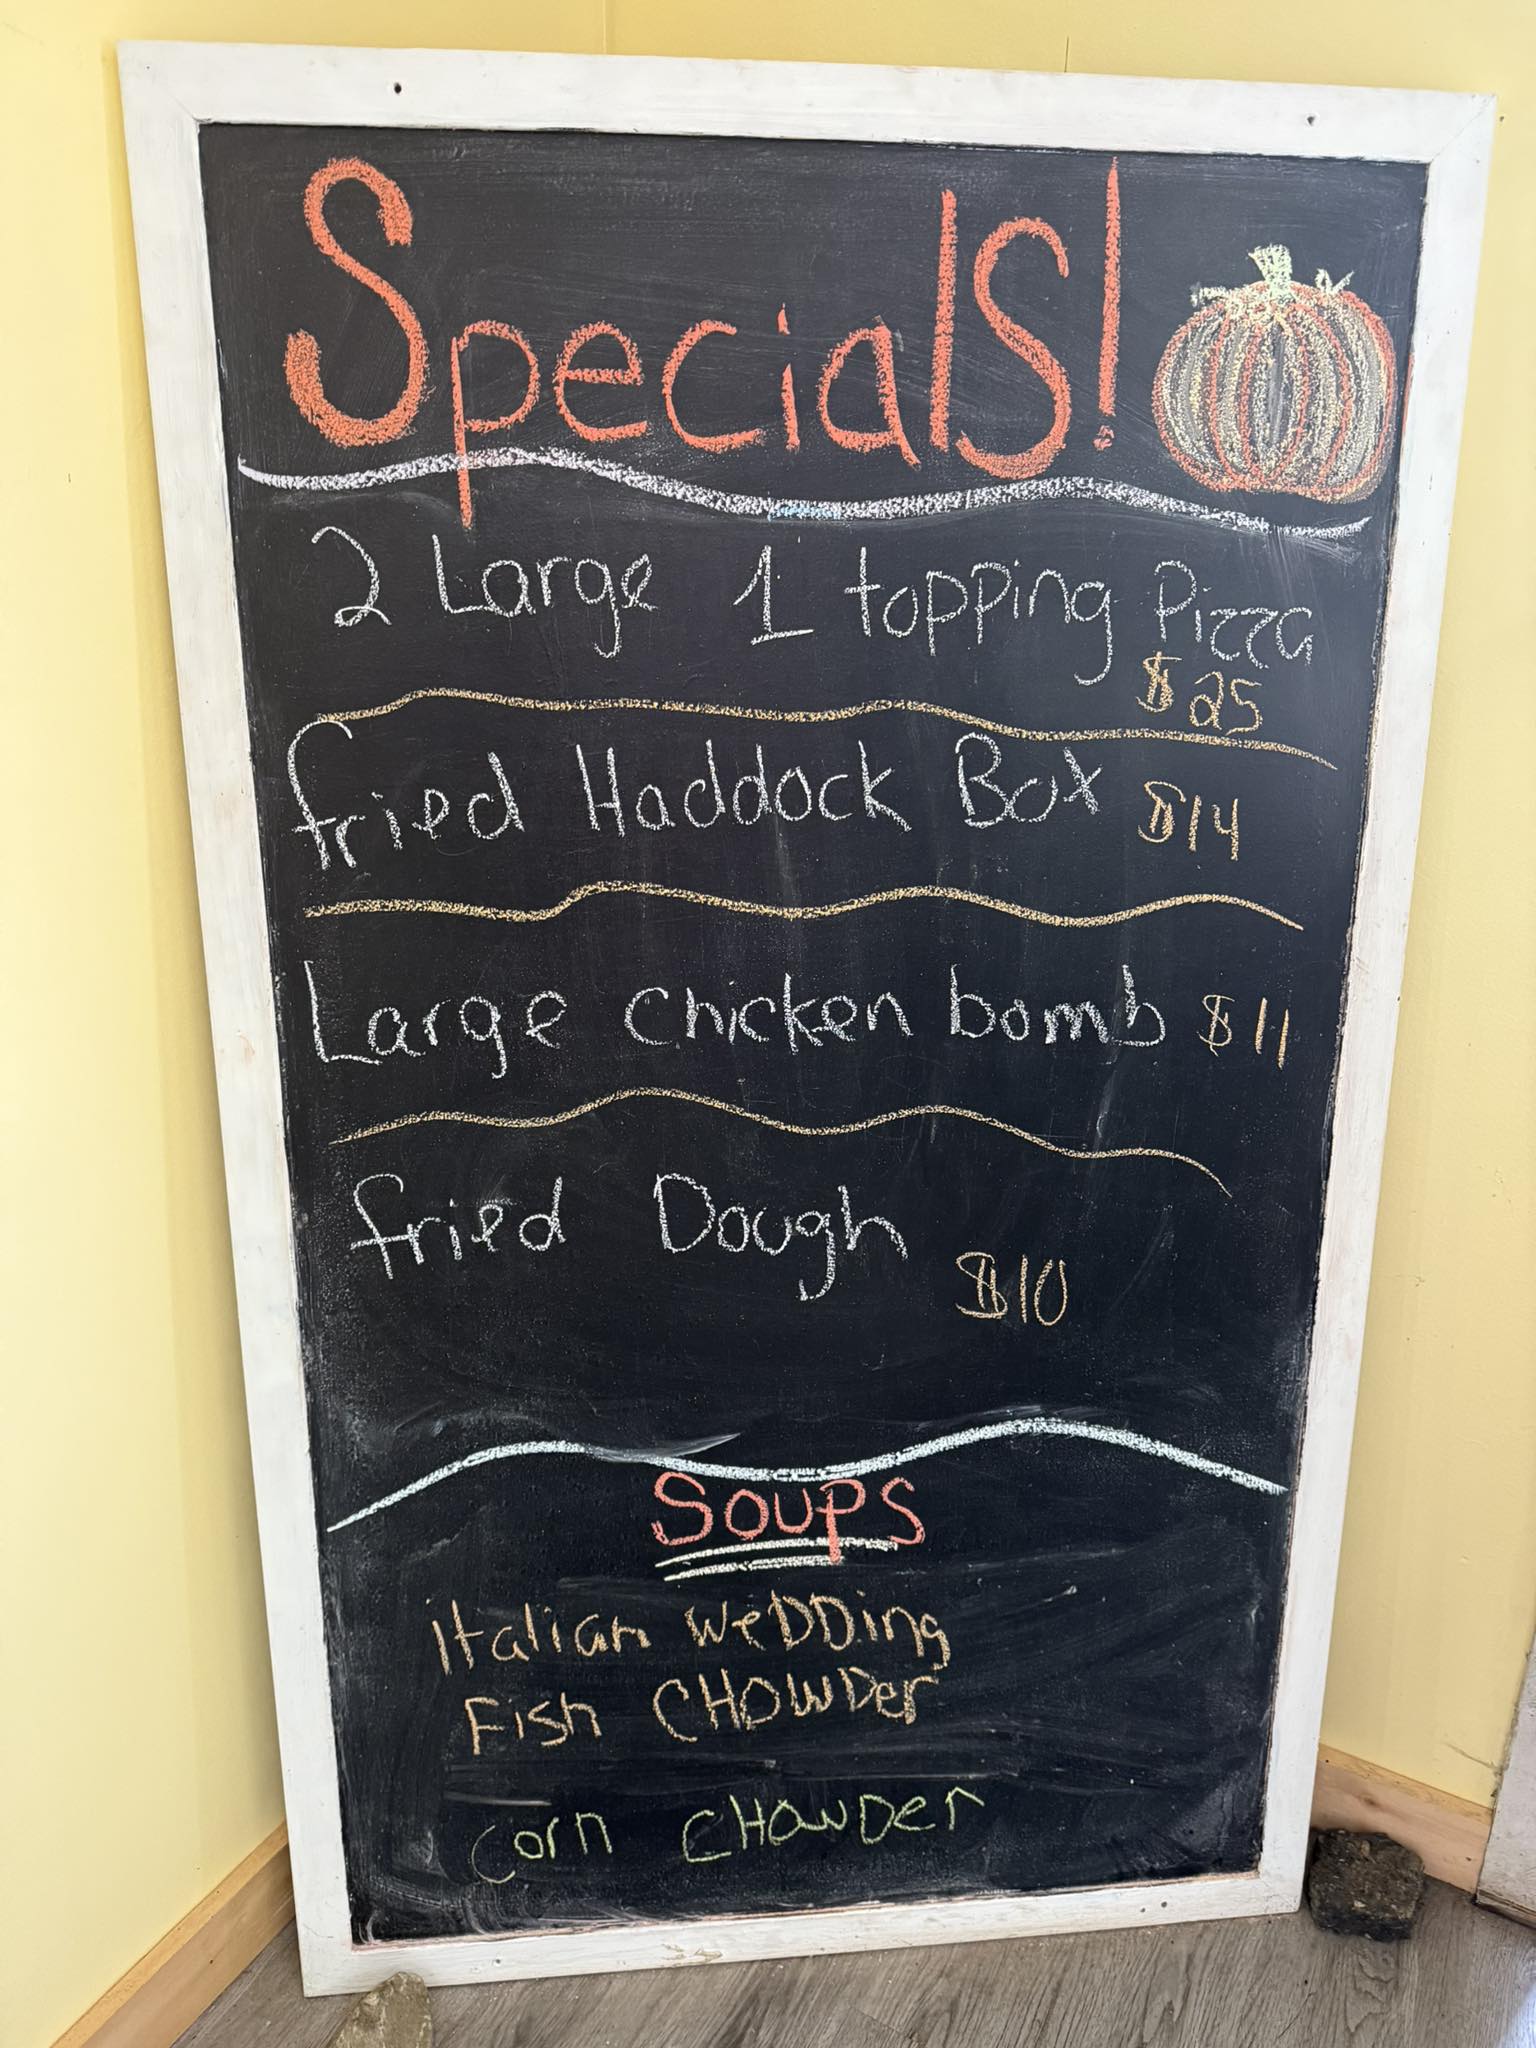 Specials!
2 Large 1 topping Pizza
$25
fried Haddock Box $14
Large chicken bomb $11
fried Dough
$10
Soups
Italian WeDDing
Fish CHOWDer
corn CHOWDer